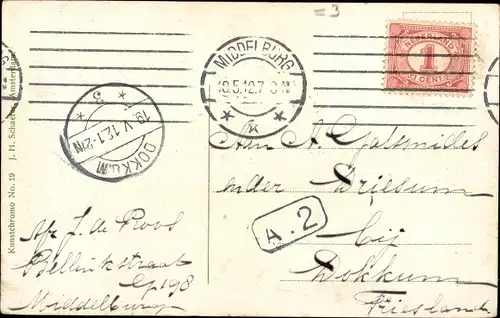 = 3
MIDDELBURG
18.5.12.7-8N
*k*
NEDERLAND
1
CENT
* 3 *
19.V.12.1-2N
DOKKUM
Kunstchromo No. 19 J. H. Schaefer, Amsterdam.
Aan
onder Driesum
A.2
bij
Dokkum
Friesland.
Afz. J. de Roos
Bellinkstraat
Middelburg